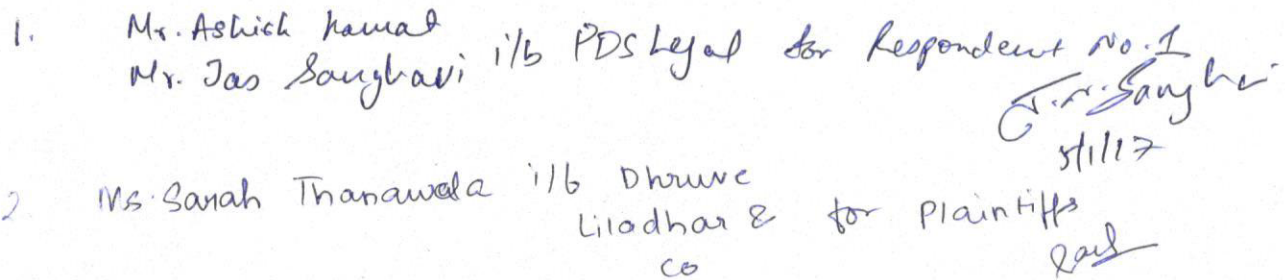 1. Mr. Ashish Kamat
Mr. Jas Sanghavi i/b PDS Legal for Respondent No. 1
J.N. Sanghavi
5/1/17
2. Ms. Sarah Thanawala i/b Dhruve
Liladhar & for Plaintiffs
Co